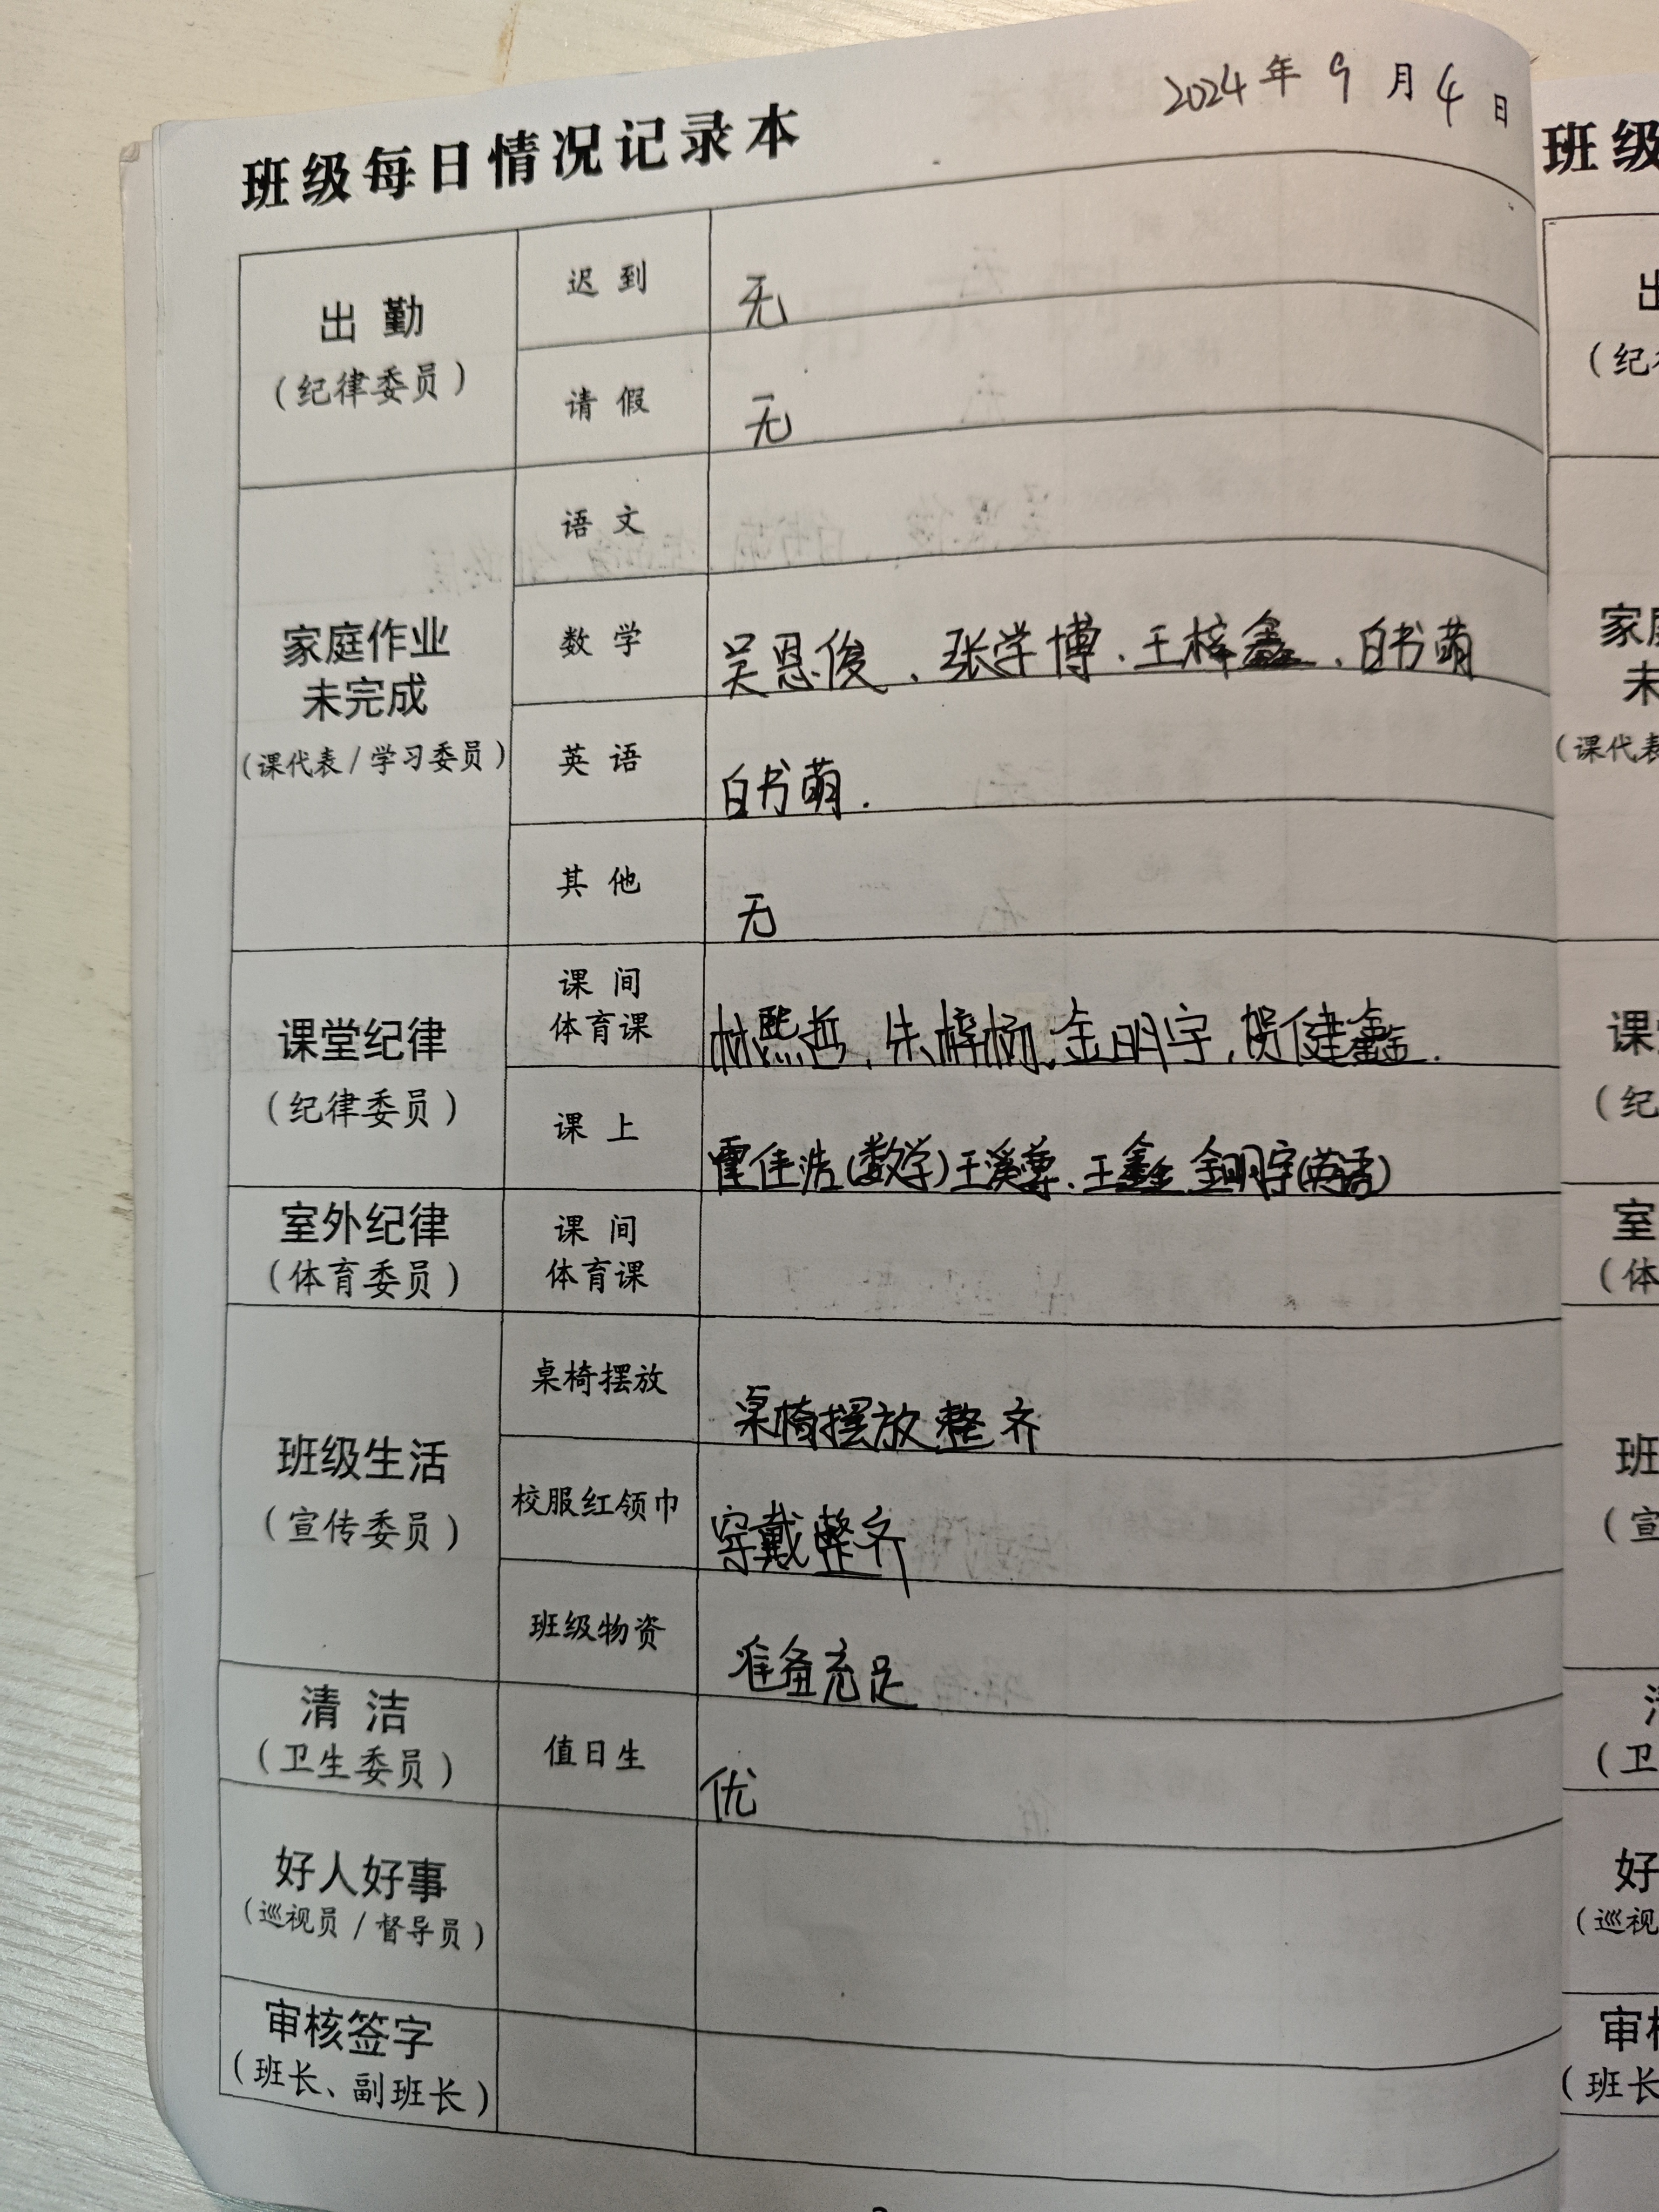 2024年9月4日
班级每日情况记录本
出勤
(纪律委员)
迟到
无
请假
无
家庭作业
未完成
(课代表/学习委员)
语文
数学
吴恩俊、张学博、王梓鑫、白书萌
英语
白书萌.
其他
无
课堂纪律
(纪律委员)
课间
体育课
林熙哲,朱梓杨,金明宇,贺健鑫.
课上
霍佳浩(数学)王溪尊.王鑫 金明宇(英语)
室外纪律
(体育委员)
课间
体育课
班级生活
(宣传委员)
桌椅摆放
桌椅摆放整齐
校服红领巾
穿戴整齐
班级物资
准备充足
清洁
(卫生委员)
值日生
优
好人好事
(巡视员/督导员)
审核签字
(班长、副班长)
班级
(纪
(课代表
(纪
(体
班
(宣
(卫
好
(巡视
(班长